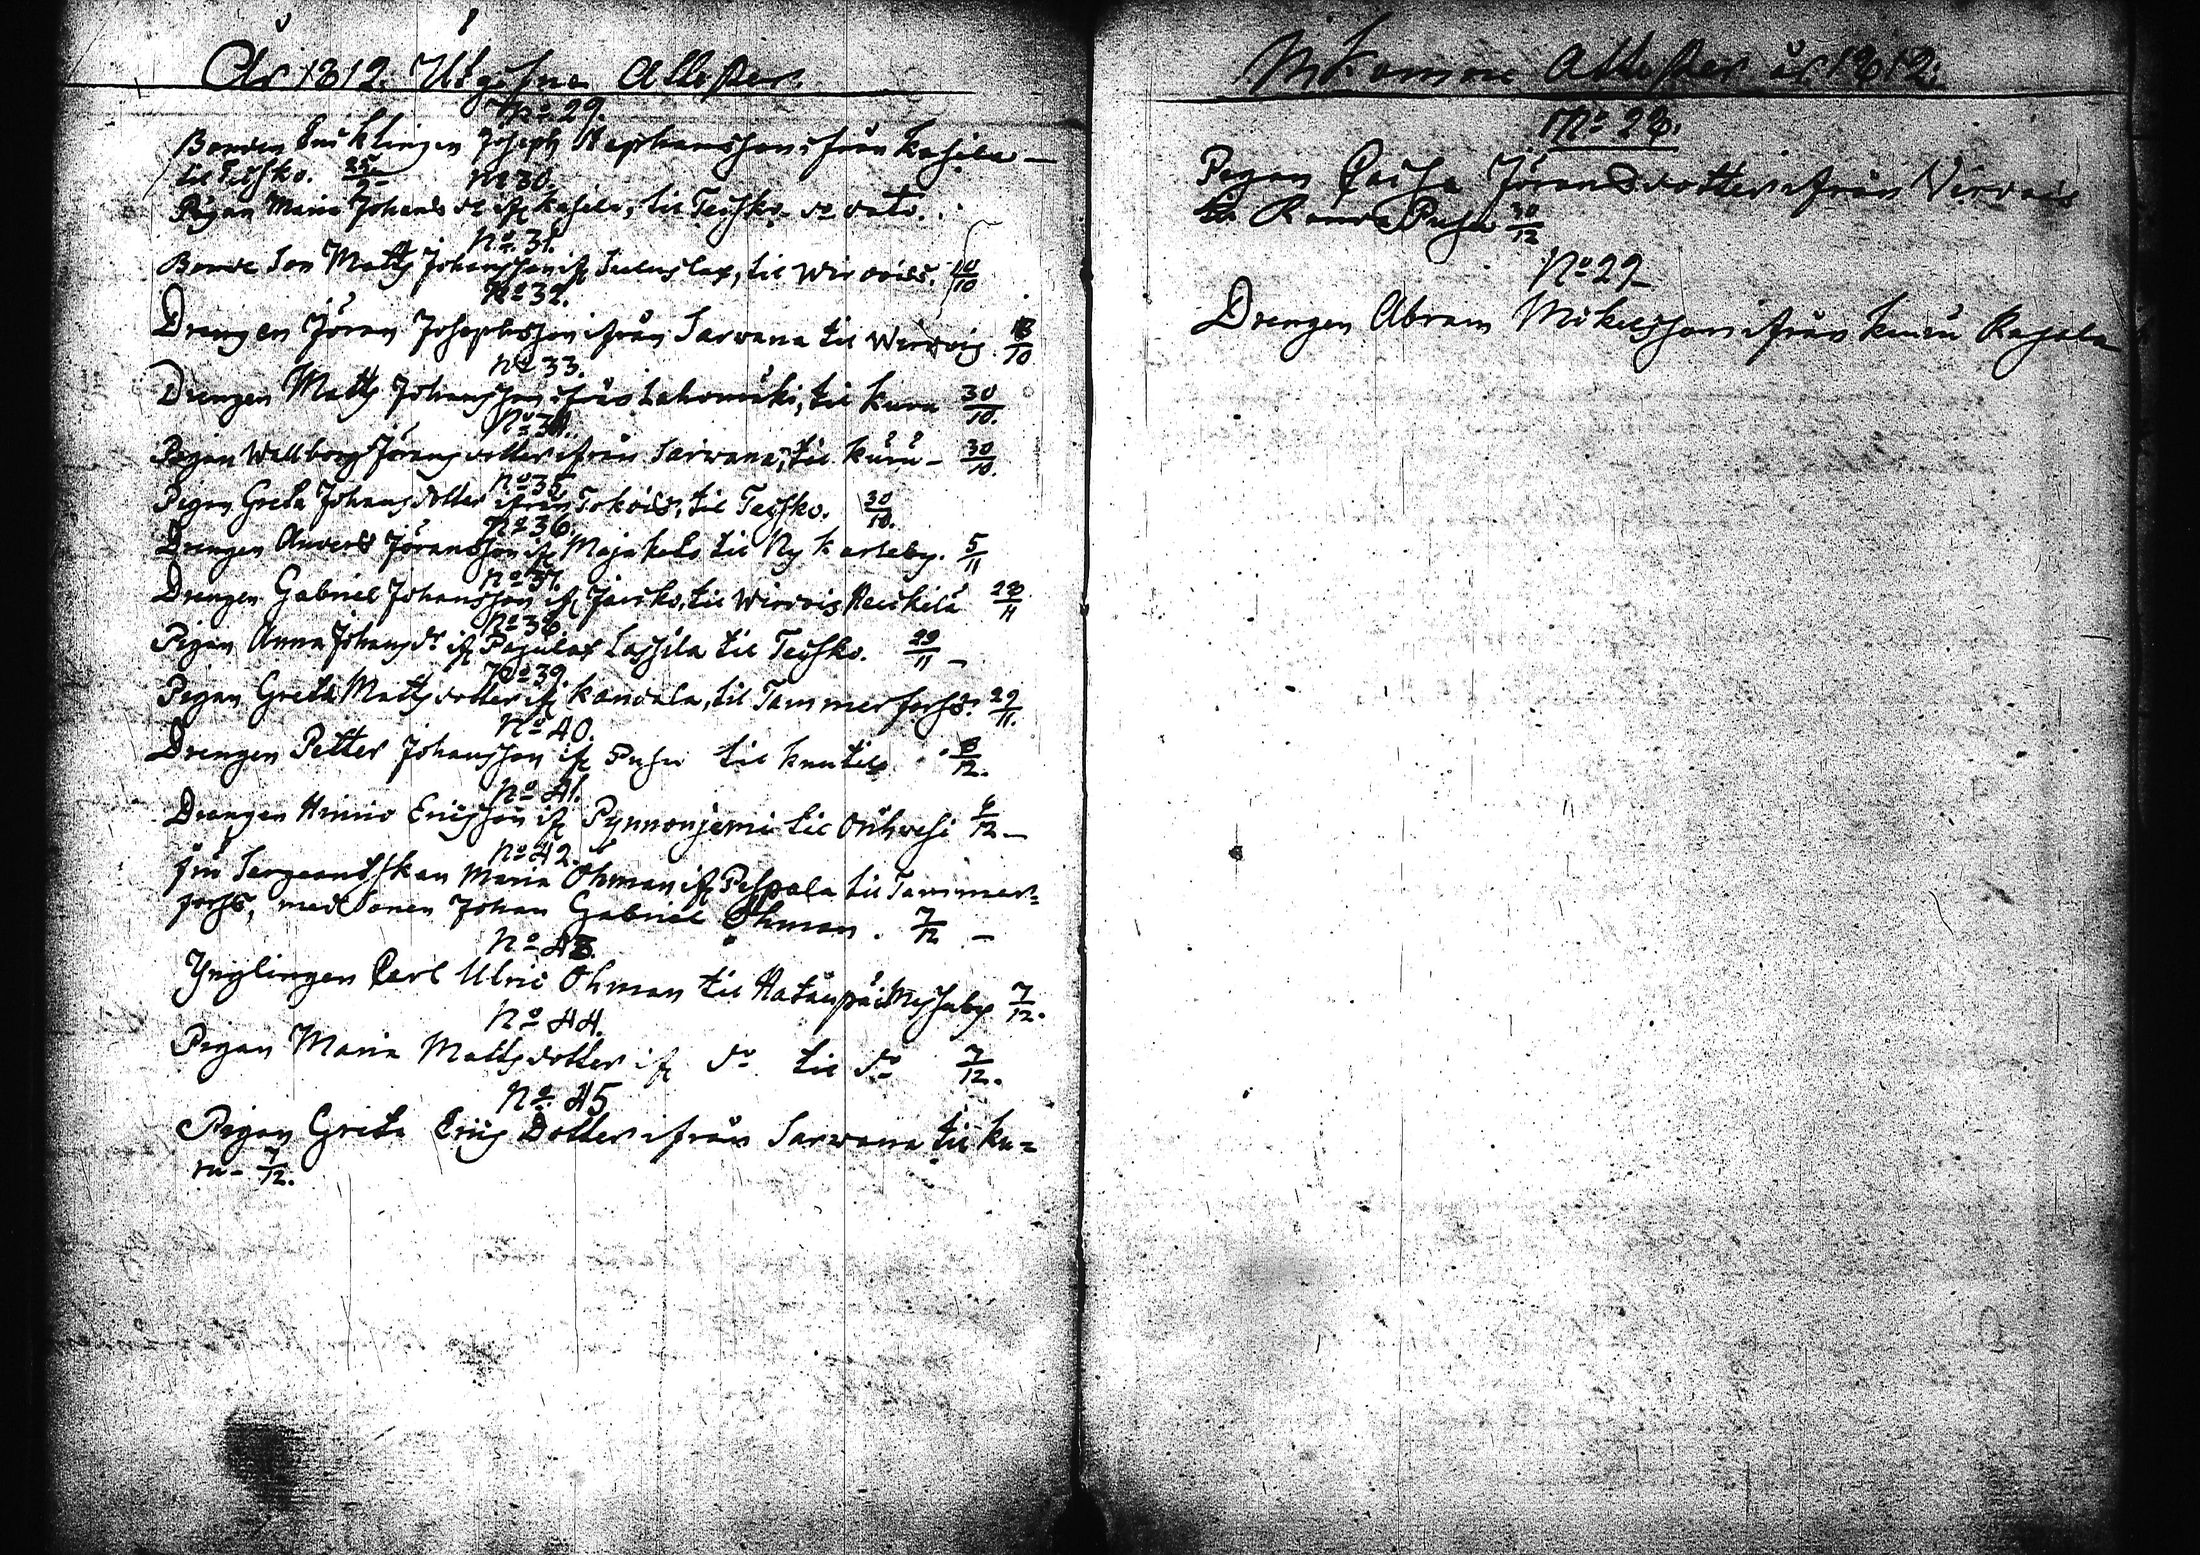 År 1812. Utgifne Attester.
No. 29.
Bonden Joseph Stephansson ifrån Kapila
til Teisko. 25
No 30.
Pigan Maria Johans dr ifr Kapila, til Teisko de dato.
No. 31.
Bonde Son Matts Johansson ifr til Wirdois. 10/10
No 32.
Drengen Jöran Josephsson ifrån Sarwana til Wirdois 18/10
No 33.
Drengen Matts Johansson ifrån Lahomäki, til Kuru 30/10.
No 34.
Pigan Wallborg Jöransdotter ifrån Sarwana, til Kuru - 30/10.
No 35
Pigan Greta Johansdotter ifrån Tokois, til Teisko. 30/10.
No 36.
Drengen Anders Jöransson ifr Majakelo til Ny Karleby. 5/11
No 37.
Drengen Gabriel Johansson ifr til Wirdois 28/11
No 38.
Pigan Anna Johansdr ifr Lassila til Teisko. 29/11 -
No 39.
Pigan Greta Mattsdotter ifr Kandala, til Tammerfors. 29/11.
No 40.
Drengen Petter Johansson ifr Puhu til 6/12.
No 41.
Drengen Henric Ericsson ifr Pynnönjemi til Orihwesi 6/12 -
No 42.
Sergeantskan Maria Öhman ifr Pespala til Tammer=
fors, med Sonen Johan Gabriel Öhman. 7/12 -
No 43.
Ynglingen Carl Ulric Öhman til Hatanpää Messuby 7/12.
No 44.
Pigan Maria Mattsdotter ifr do til do 7/12.
No 45
Pigan Greta Erics Dotter ifrån Sarwana til Ku=
ru - 7/12.
Inkomne Attester år 1812.
No 28.
Pigan Caisa Jöransdotter ifrån Virdois
til Puhu 30/12
No 29
Drengen Abram Mikelsson ifrån Kuru